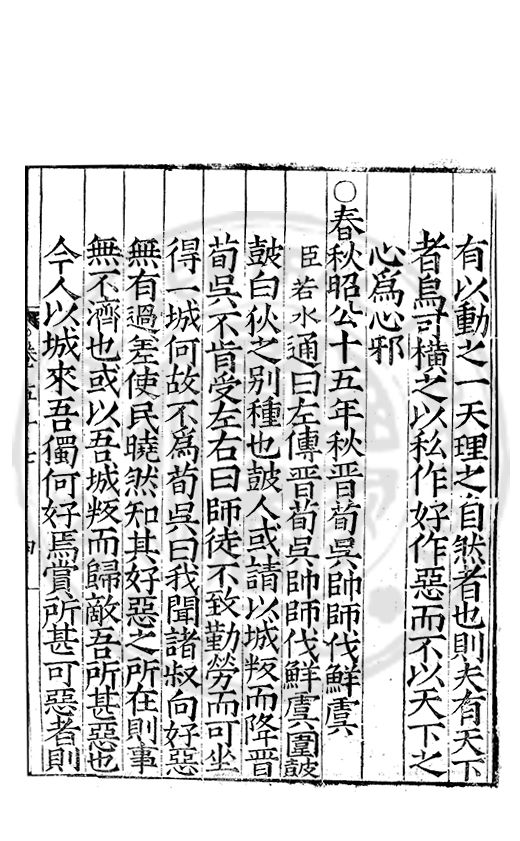 有以動之一天理之自然者也則夫有天下
者烏可橫之以私作好作惡而不以天下之
心爲心邪
○春秋昭公十五年秋晉荀吳帥師伐鮮虞
臣若水通曰左傳晉荀吳帥師伐鮮虞圍鼓
鼓白狄之別種也鼓人或請以城叛而降晉
荀吳不肯受左右曰師徒不致勤勞而可坐
得一城何故不爲荀吳曰我聞諸叔向好惡
無有過差使民曉然知其好惡之所在則事
無不濟也或以吾城叛而歸敵吾所甚惡也
今人以城來吾獨何好焉賞所甚可惡者則